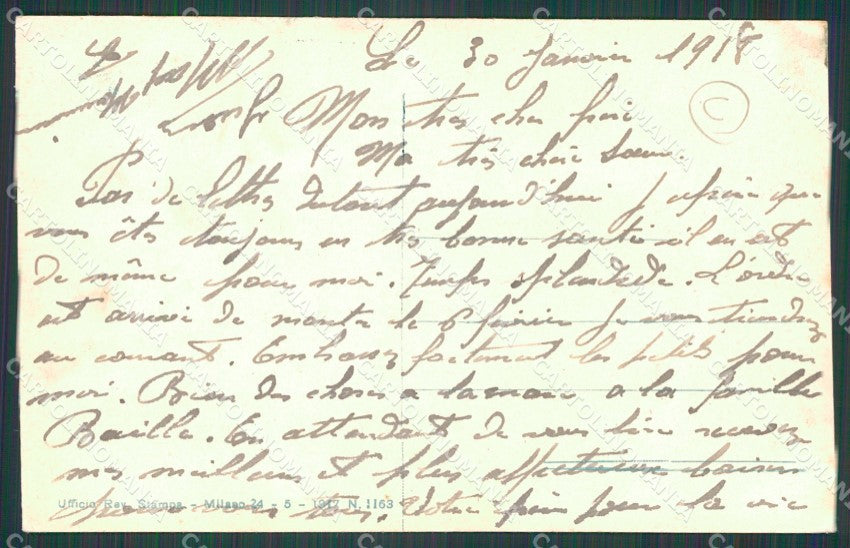 Le 30 Janvier 1918
Mon très cher frère
Ma très chère Soeur.
Pas de lettres du tout aujourd'hui J'espère que
vous êtes toujours en très bonne santé il en est
de même pour moi. Temps splendide. L'ordre
est arrivé de monter le 6 février je vous tiendrez
au courant. Embrassez fortement les petits pour
moi. Bien des choses a la famille
Baille. En attendant de vous lire recevez
mes meilleurs et plus affectueux baisers
pour vous tous. Votre frère pour la vie
Ufficio Rev. Stampa - Milano 24 - 5 - 1917 N. 1163
C
CARTOLINOMANIA